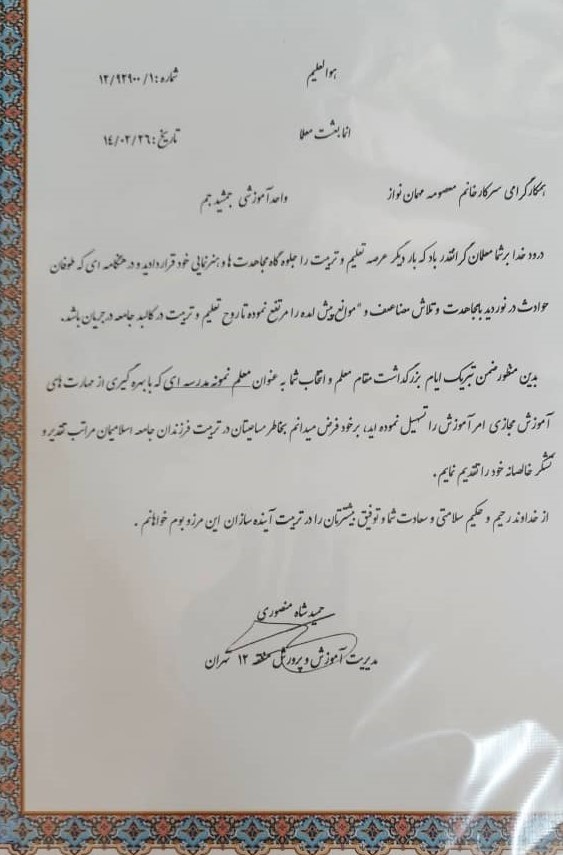 هوالعلیم
شماره: ۱۲/۹۲۹۰۰/۱
انما بعثت معلما
تاریخ: ۱۴/۰۲/۲۶
همکار گرامی سرکار خانم معصومه مهمان نواز
واحد آموزشی جمشید جم
درود خدا بر شما معلمان گرانقدر باد که بار دیگر عرصه تعلیم و تربیت را جلوه گاه مجاهدت ها و هنرنمایی خود قرار دادید و در هنگامه ای که طوفان
حوادث در نوردید با مجاهدت و تلاش مضاعف و "موانع پیش آمده را مرتفع نموده تا روح تعلیم و تربیت در کالبد جامعه در جریان باشد.
بدین منظور ضمن تبریک ایام بزرگداشت مقام معلم و انتخاب شما به عنوان معلم نمونه مدرسه ای که با بهره گیری از مهارت های
آموزش مجازی امر آموزش را تسهیل نموده اید، بر خود فرض میدانم بخاطر مساعیتان در تربیت فرزندان جامعه اسلامیمان مراتب تقدیر و
تشکر خالصانه خود را تقدیم نمایم.
از خداوند رحیم و حکیم سلامتی و سعادت شما و توفیق بیشترتان را در تربیت آینده سازان این مرز و بوم خواهانم .
حمید شاه منصوری
مدیریت آموزش و پرورش منطقه ۱۲ تهران